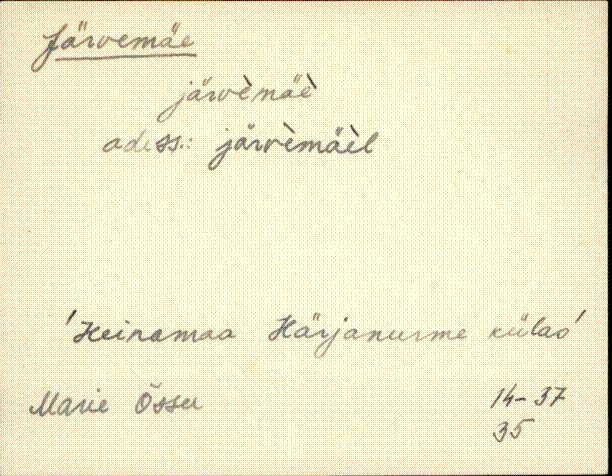 Järvemäe
järvèmäè
adess.: järvèmäèl
'Heinamaa Härjanurme külas'
Marie Õssu 14-37
35